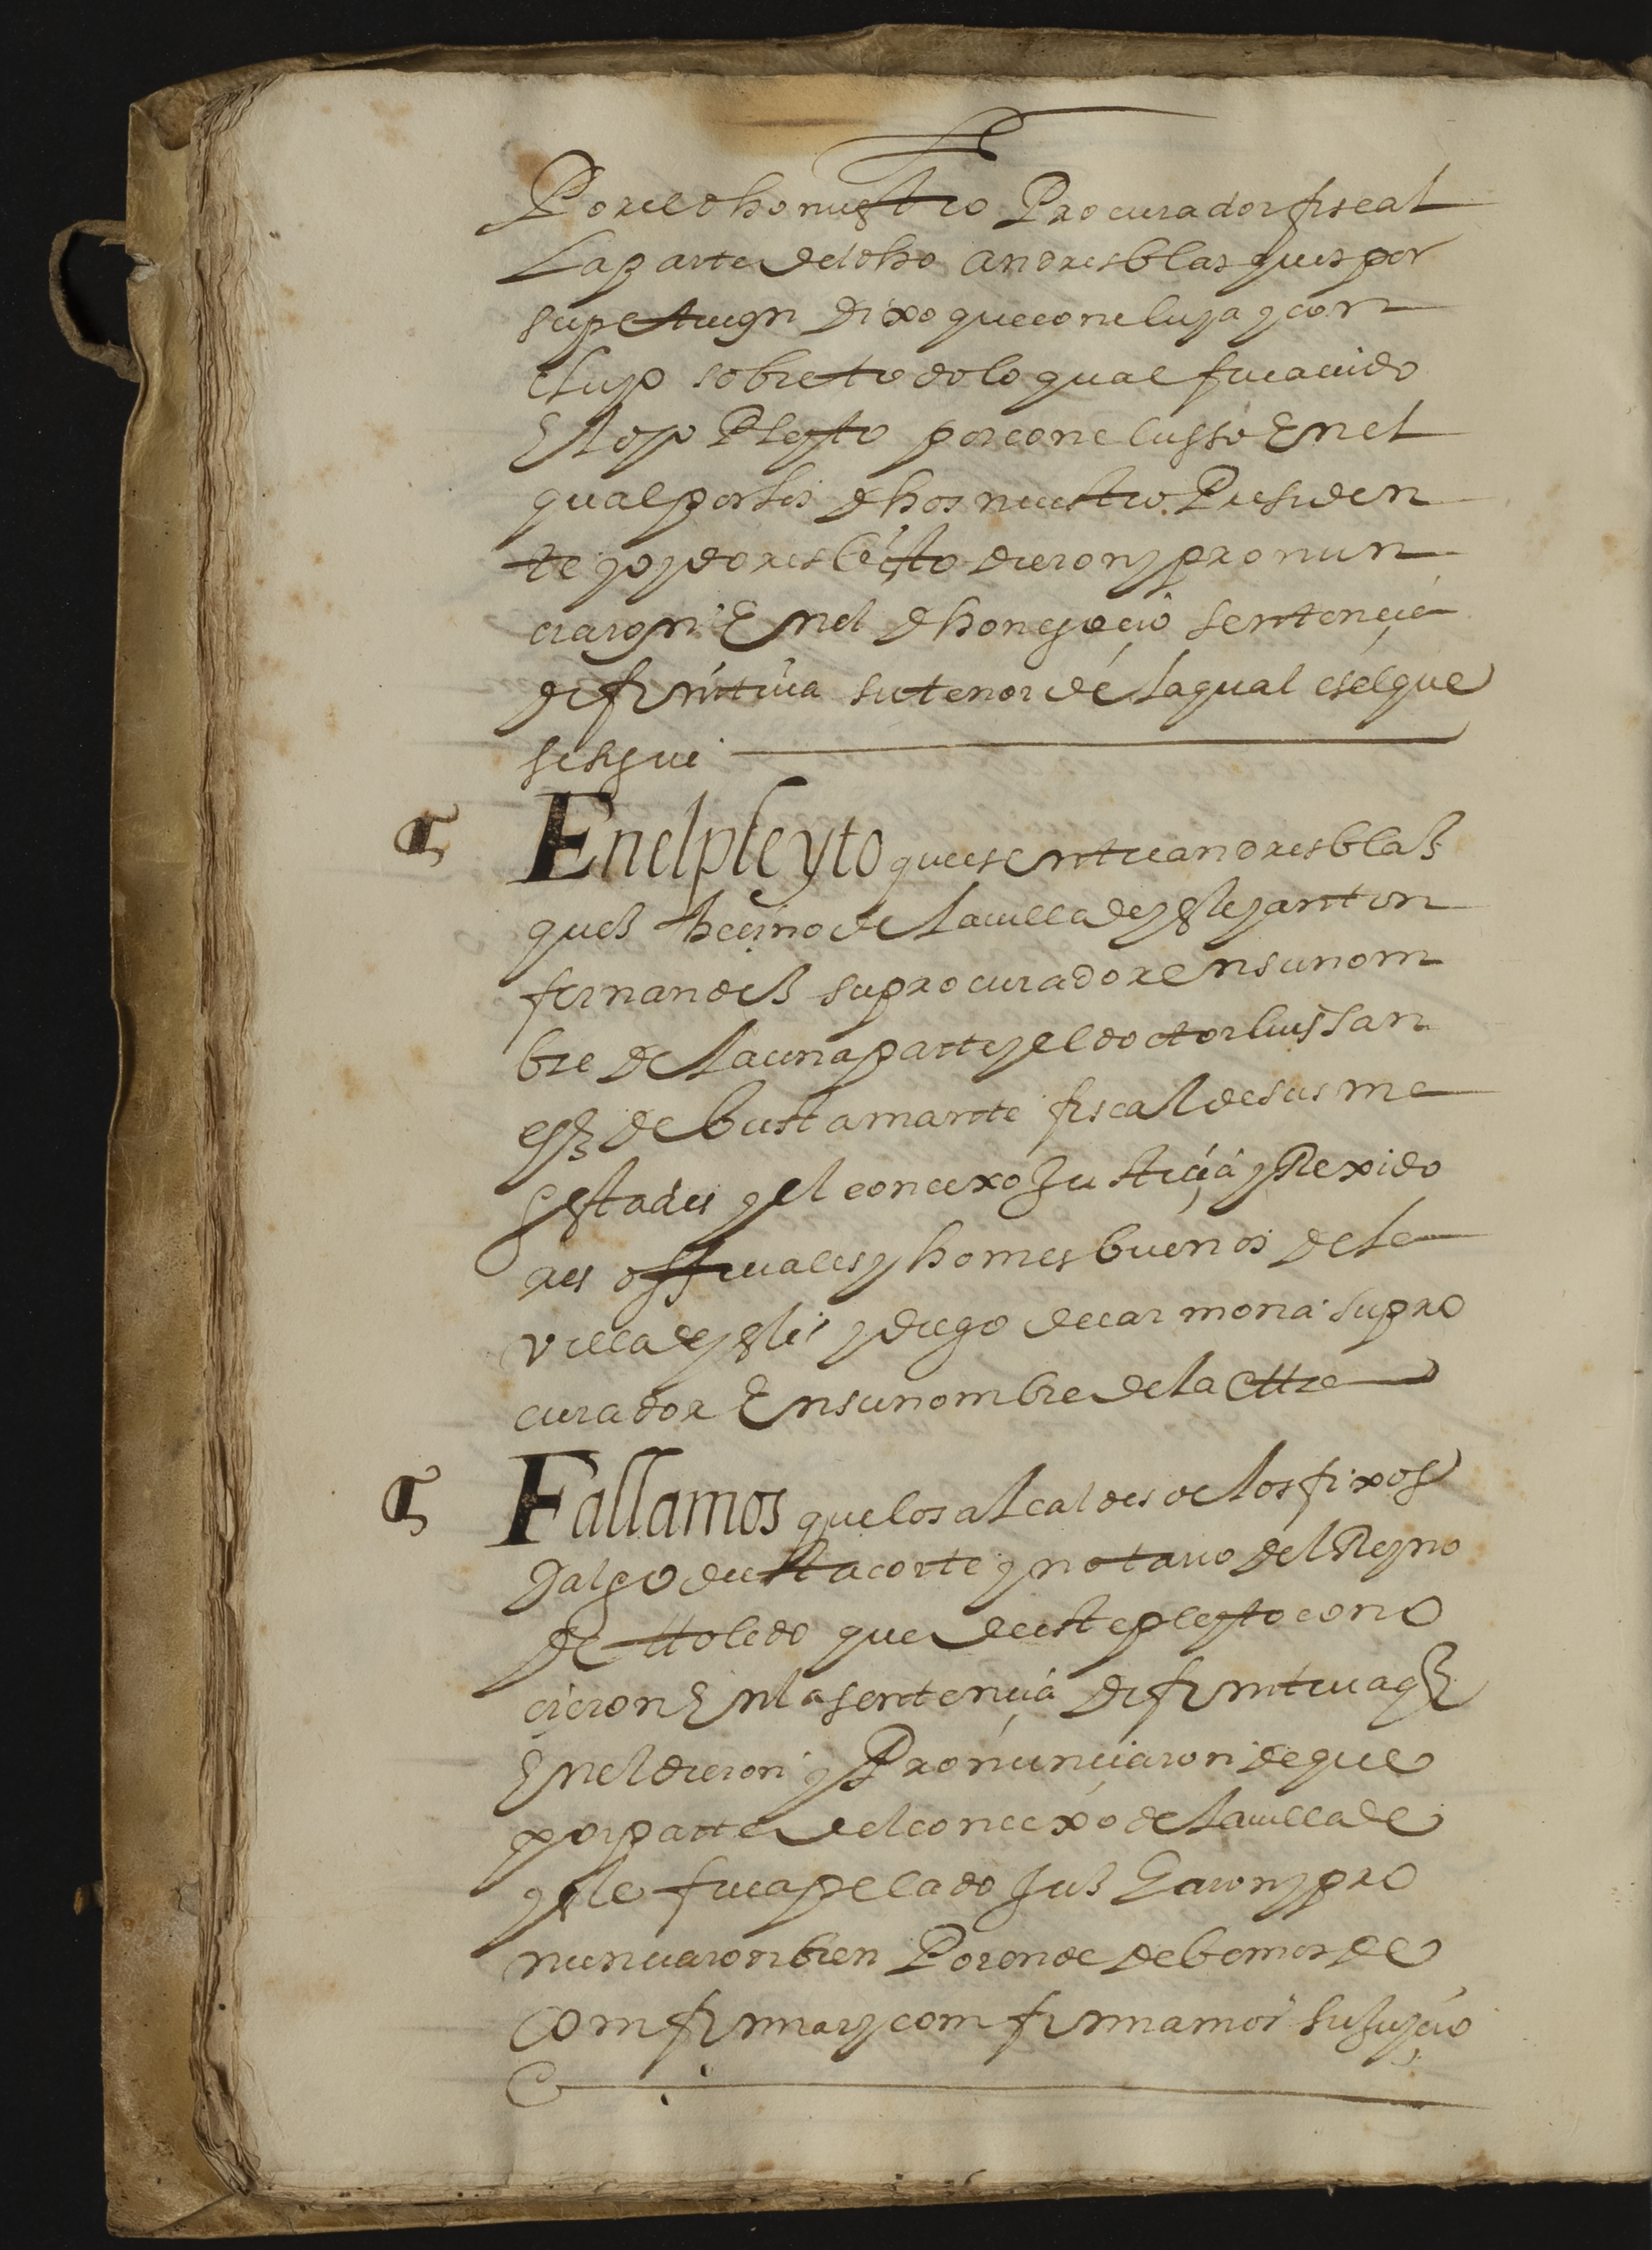 Por el dho nuestro Procurador fiscal
La parte del dho andres blasques por
su petiçion dixo que concluya y con
cluyo sobre todo lo qual fue auido
El dho Pleyto por conclusso En el
qual por los dhos nuestro Presiden
te y oydores bisto dieron y pronun
ciaron En el dho negocio sentençia
difinitiua su tenor de la qual es el que
se sigue
¶ En el pleyto que es entre andres blas
ques beçino de la uilla de yste y anton
fernandes su procurador en su nom
bre de la una parte y el doctor luis san
es de bustamante fiscal de sus ma
gestades y el concexo Justiçia y Rexido
res offiçiales y homes buenos de la
villa de yste y diego de carmona su pro
curador En su nombre de la ottra
¶ Fallamos que los alcaldes de los fixos
dalgo de esta corte y notario del Reyno
de ttoledo que de este pleyto cono
cieron En la sentençia difinitiua q
En el dieron y Pronunçiaron de que
por parte del concexo de la uilla de
yste fue apelado Jusgaron y pro
nunciaron bien Por ende debemos de
comfirmar y comfirmamos su Juyçio